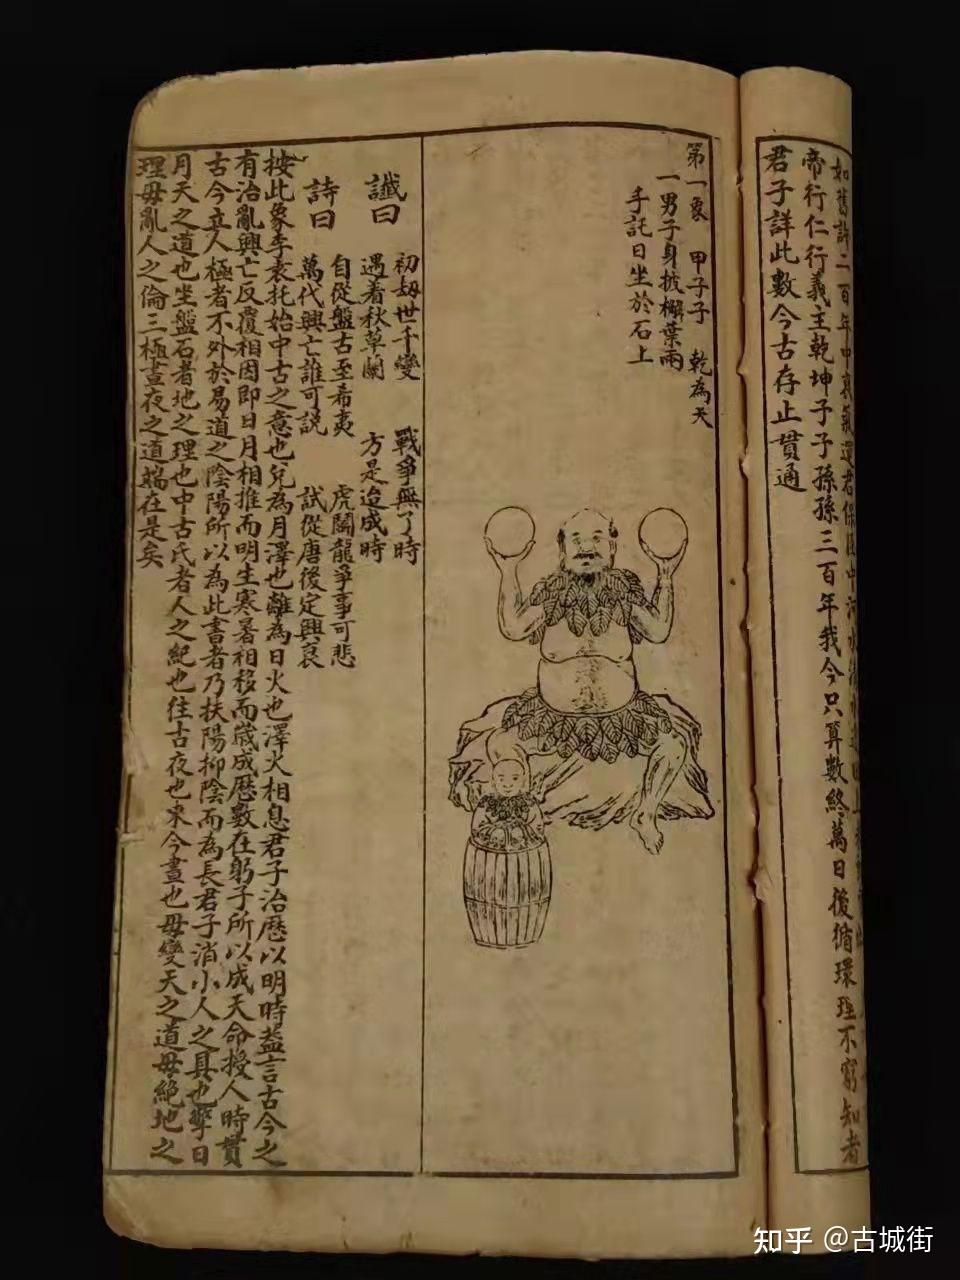 如舊許二百年中
帝行仁行義主乾坤子子孫孫三百年我今只算數終萬日後循環理不窮知者
君子詳此數今古存止貫通
第一象 甲子子 乾為天
一男子身披槲葉兩
手託日坐於石上
讖曰
初刼世千變 戰爭無了時
遇着秋草闌 方是迨成時
詩曰
自從盤古至希夷 虎鬭龍爭事可悲
萬代興亡誰可説 試從唐後定興衰
按此象李袁托始中古之意也兌為月澤也離為日火也澤火相息君子治歷以明時蓋言古今之
有治亂興亡反覆相因即日月相推而明生寒暑相移而歲成歷數在躬子所以成天命授人時貫
古今立人極者不外於易道之陰陽所以為此書者乃扶陽抑陰而為長君子消小人之具也擎日
月天之道也坐盤石者地之理也中古氏者人之紀也往古夜也来今晝也毋變天之道毋絶地之
理毋亂人之倫三極晝夜之道端在是矣
知乎 @古城街